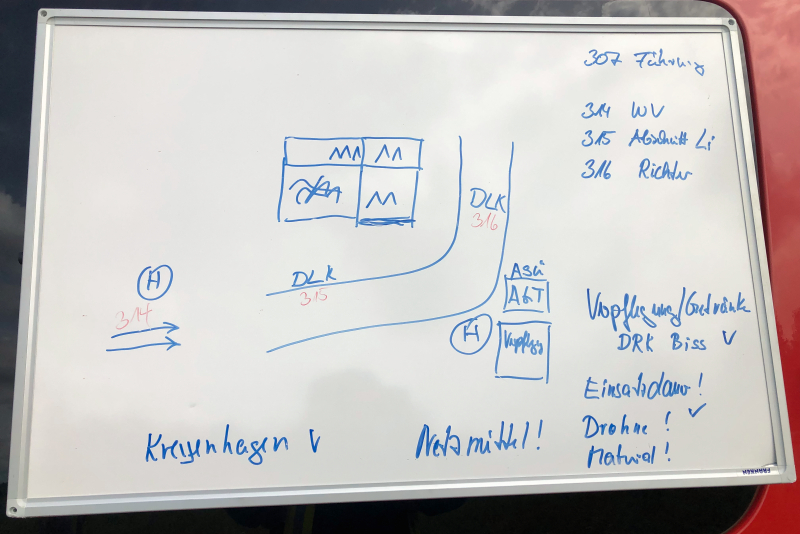 307 Führung
314 WV
315 Abschnitt Li
316 Richter
DLK
316
DLK
315
H
314
ASü
AGT
H
Verpflegung
Verpflegung/Getränke
DRK Biss
Einsatzdauer!
Drohne!
Material!
Kreyenhagen
Netzmittel!
FRANKEN